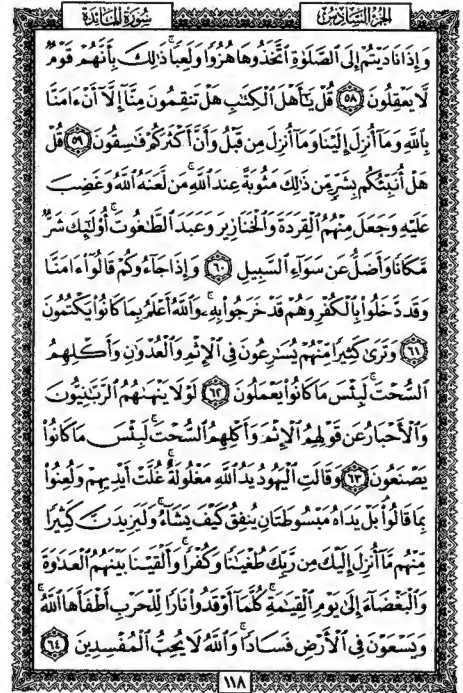 الجزء السادس سورة المائدة
وَإِذَا نَادَيْتُمْ إِلَى ٱلصَّلَوٰةِ ٱتَّخَذُوهَا هُزُوًا وَلَعِبًا ذَٰلِكَ بِأَنَّهُمْ قَوْمٌ
لَّا يَعْقِلُونَ ٥٨ قُلْ يَٰٓأَهْلَ ٱلْكِتَٰبِ هَلْ تَنقِمُونَ مِنَّآ إِلَّآ أَنْ ءَامَنَّا
بِٱللَّهِ وَمَآ أُنزِلَ إِلَيْنَا وَمَآ أُنزِلَ مِن قَبْلُ وَأَنَّ أَكْثَرَكُمْ فَٰسِقُونَ ٥٩ قُلْ
هَلْ أُنَبِّئُكُم بِشَرٍّ مِّن ذَٰلِكَ مَثُوبَةً عِندَ ٱللَّهِ مَن لَّعَنَهُ ٱللَّهُ وَغَضِبَ
عَلَيْهِ وَجَعَلَ مِنْهُمُ ٱلْقِرَدَةَ وَٱلْخَنَازِيرَ وَعَبَدَ ٱلطَّٰغُوتَ أُو۟لَٰٓئِكَ شَرٌّ
مَّكَانًا وَأَضَلُّ عَن سَوَآءِ ٱلسَّبِيلِ ٦٠ وَإِذَا جَآءُوكُمْ قَالُوٓا۟ ءَامَنَّا
وَقَد دَّخَلُوا۟ بِٱلْكُفْرِ وَهُمْ قَدْ خَرَجُوا۟ بِهِۦ وَٱللَّهُ أَعْلَمُ بِمَا كَانُوا۟ يَكْتُمُونَ
٦١ وَتَرَىٰ كَثِيرًا مِّنْهُمْ يُسَٰرِعُونَ فِى ٱلْإِثْمِ وَٱلْعُدْوَٰنِ وَأَكْلِهِمُ
ٱلسُّحْتَ لَبِئْسَ مَا كَانُوا۟ يَعْمَلُونَ ٦٢ لَوْلَا يَنْهَىٰهُمُ ٱلرَّبَّٰنِيُّونَ
وَٱلْأَحْبَارُ عَن قَوْلِهِمُ ٱلْإِثْمَ وَأَكْلِهِمُ ٱلسُّحْتَ لَبِئْسَ مَا كَانُوا۟
يَصْنَعُونَ ٦٣ وَقَالَتِ ٱلْيَهُودُ يَدُ ٱللَّهِ مَغْلُولَةٌ غُلَّتْ أَيْدِيهِمْ وَلُعِنُوا۟
بِمَا قَالُوا۟ بَلْ يَدَاهُ مَبْسُوطَتَانِ يُنفِقُ كَيْفَ يَشَآءُ وَلَيَزِيدَنَّ كَثِيرًا
مِّنْهُم مَّآ أُنزِلَ إِلَيْكَ مِن رَّبِّكَ طُغْيَٰنًا وَكُفْرًا وَأَلْقَيْنَا بَيْنَهُمُ ٱلْعَدَٰوَةَ
وَٱلْبَغْضَآءَ إِلَىٰ يَوْمِ ٱلْقِيَٰمَةِ كُلَّمَآ أَوْقَدُوا۟ نَارًا لِّلْحَرْبِ أَطْفَأَهَا ٱللَّهُ
وَيَسْعَوْنَ فِى ٱلْأَرْضِ فَسَادًا وَٱللَّهُ لَا يُحِبُّ ٱلْمُفْسِدِينَ ٦٤
١١٨